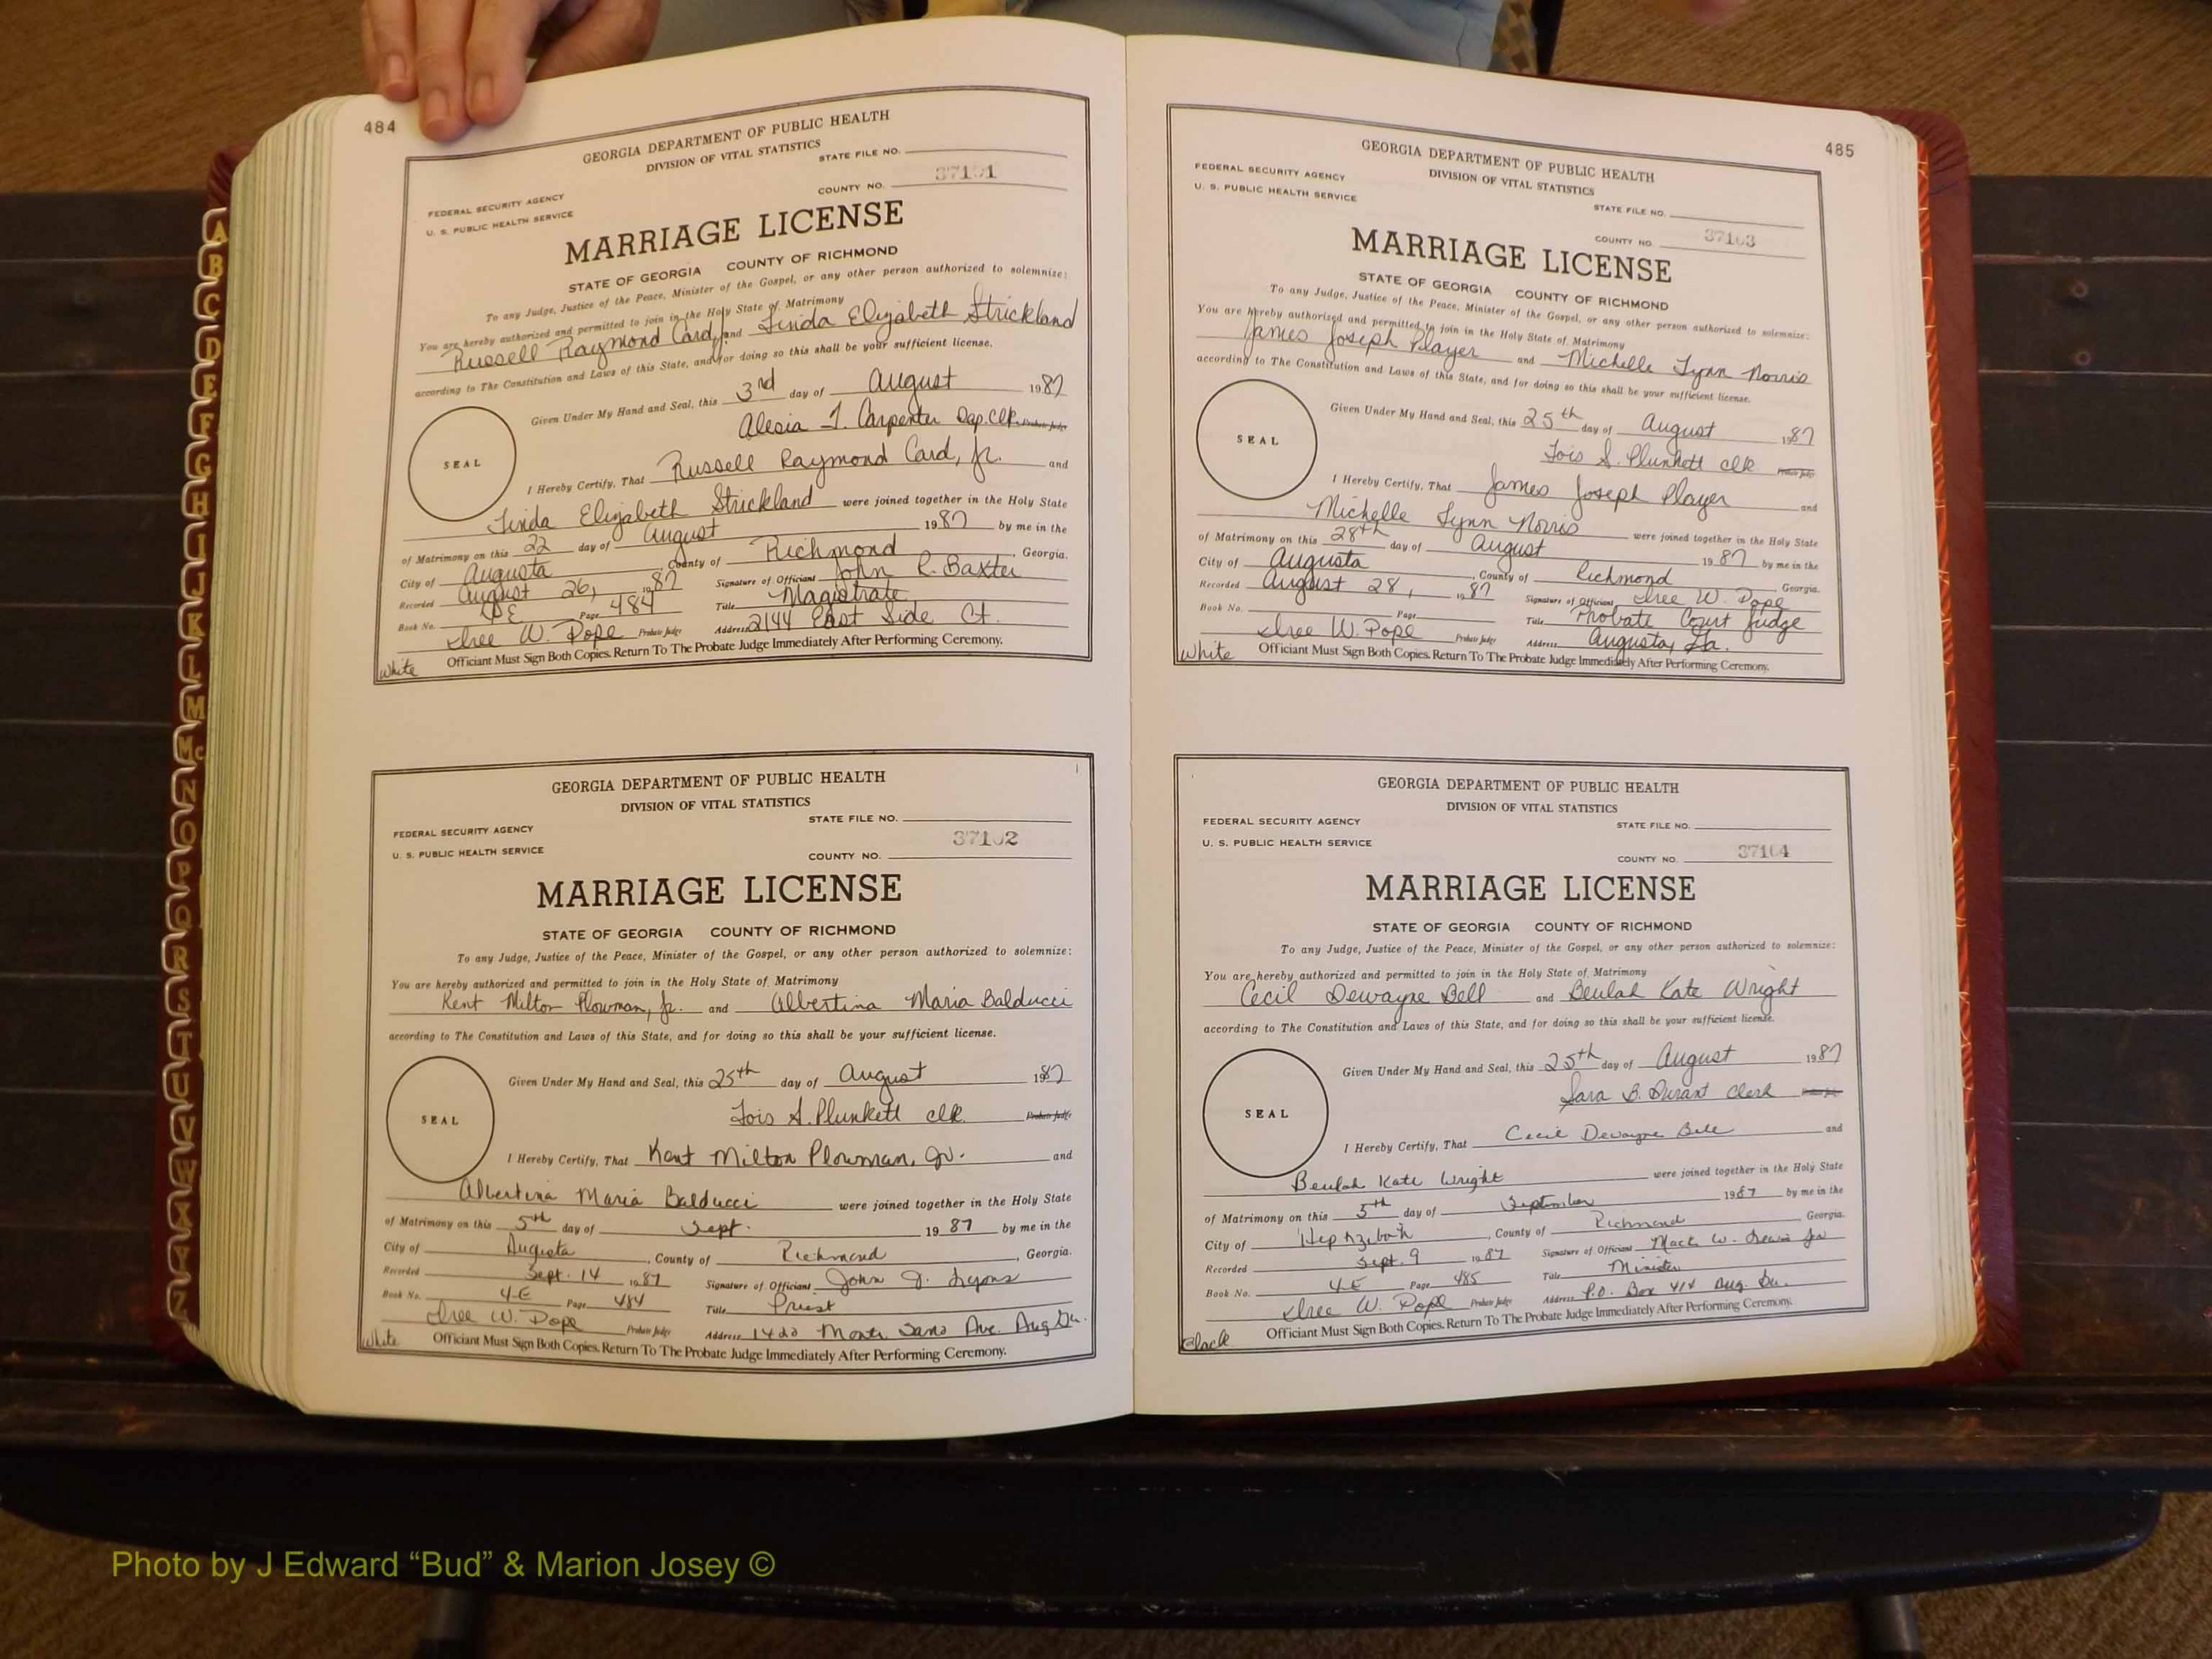 484
GEORGIA DEPARTMENT OF PUBLIC HEALTH
DIVISION OF VITAL STATISTICS
STATE FILE NO.
COUNTY NO.
FEDERAL SECURITY AGENCY
U. S. PUBLIC HEALTH SERVICE
MARRIAGE LICENSE
STATE OF GEORGIA COUNTY OF RICHMOND
To any Judge, Justice of the Peace, Minister of the Gospel, or any other person authorized to solemnize:
You are hereby authorized and permitted to join in the Holy State of Matrimony
Russell Raymond Card, Jr. and Linda Elizabeth Strickland
according to The Constitution and Laws of this State, and for doing so this shall be your sufficient license.
Given Under My Hand and Seal, this 3rd day of August 1987
Alesia Carpenter Dep. Clk. Probate Judge
SEAL
I Hereby Certify, That Russell Raymond Card, Jr. and
Linda Elizabeth Strickland were joined together in the Holy State
of Matrimony on this 22 day of August 1987 by me in the
City of Augusta, County of Richmond, Georgia.
Recorded August 26, 1987 Signature of Officiant John R. Baxter
Book No. Page 484 Title Magistrate
W. Pope Probate Judge Address 2144 East Side Ct.
White Officiant Must Sign Both Copies. Return To The Probate Judge Immediately After Performing Ceremony.
GEORGIA DEPARTMENT OF PUBLIC HEALTH
DIVISION OF VITAL STATISTICS
STATE FILE NO.
FEDERAL SECURITY AGENCY
U. S. PUBLIC HEALTH SERVICE
COUNTY NO. 37102
MARRIAGE LICENSE
STATE OF GEORGIA COUNTY OF RICHMOND
To any Judge, Justice of the Peace, Minister of the Gospel, or any other person authorized to solemnize:
You are hereby authorized and permitted to join in the Holy State of Matrimony
Kent Milton Plowman, Jr. and Albertina Maria Balducci
according to The Constitution and Laws of this State, and for doing so this shall be your sufficient license.
Given Under My Hand and Seal, this 25th day of August 1987
Lois S. Plunkett clk. Probate Judge
SEAL
I Hereby Certify, That Kent Milton Plowman, Jr. and
Albertina Maria Balducci were joined together in the Holy State
of Matrimony on this 5th day of Sept. 1987 by me in the
City of Augusta, County of Richmond, Georgia.
Recorded Sept. 14 1987 Signature of Officiant John J. Lyons
Book No. 4-E Page 484 Title Priest
W. Pope Probate Judge Address 1420 Monte Sano Ave. Aug Ga.
White Officiant Must Sign Both Copies. Return To The Probate Judge Immediately After Performing Ceremony.
485
GEORGIA DEPARTMENT OF PUBLIC HEALTH
DIVISION OF VITAL STATISTICS
FEDERAL SECURITY AGENCY
U. S. PUBLIC HEALTH SERVICE
STATE FILE NO.
COUNTY NO. 37103
MARRIAGE LICENSE
STATE OF GEORGIA COUNTY OF RICHMOND
To any Judge, Justice of the Peace, Minister of the Gospel, or any other person authorized to solemnize:
You are hereby authorized and permitted to join in the Holy State of Matrimony
James Joseph Player and Michelle Lynn Norris
according to The Constitution and Laws of this State, and for doing so this shall be your sufficient license.
Given Under My Hand and Seal, this 25th day of August 1987
Lois S. Plunkett clk Probate Judge
SEAL
I Hereby Certify, That James Joseph Player and
Michelle Lynn Norris were joined together in the Holy State
of Matrimony on this 28th day of August 1987 by me in the
City of Augusta, County of Richmond Georgia.
Recorded August 28, 1987 Signature of Officiant W. Pope
Book No. Page Title Probate Court Judge
W. Pope Probate Judge Address Augusta, Ga.
White Officiant Must Sign Both Copies. Return To The Probate Judge Immediately After Performing Ceremony.
GEORGIA DEPARTMENT OF PUBLIC HEALTH
DIVISION OF VITAL STATISTICS
FEDERAL SECURITY AGENCY
STATE FILE NO.
U. S. PUBLIC HEALTH SERVICE
COUNTY NO. 37104
MARRIAGE LICENSE
STATE OF GEORGIA COUNTY OF RICHMOND
To any Judge, Justice of the Peace, Minister of the Gospel, or any other person authorized to solemnize:
You are hereby authorized and permitted to join in the Holy State of Matrimony
Cecil Dewayne Bell and Beulah Kate Wright
according to The Constitution and Laws of this State, and for doing so this shall be your sufficient license.
Given Under My Hand and Seal, this 25th day of August 1987
Sara B. Durant Clerk
SEAL
I Hereby Certify, That Cecil Dewayne Bell and
Beulah Kate Wright were joined together in the Holy State
of Matrimony on this 5th day of September 1987 by me in the
City of Hephzibah, County of Richmond Georgia.
Recorded Sept. 9 1987 Signature of Officiant Mack W. Lewis Jr
Book No. 4-E Page 485 Title Minister
W. Pope Probate Judge Address P.O. Box 414 Aug. Ga.
Black Officiant Must Sign Both Copies. Return To The Probate Judge Immediately After Performing Ceremony.
A
B
C
D
E
F
G
H
I
J
K
L
M
Mc
N
O
P
Q
R
S
T
U
V
W
X
Y
Z
Photo by J Edward “Bud” & Marion Josey ©